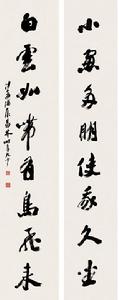 小窗多明使我久坐
白雲如帶有鳥飛來